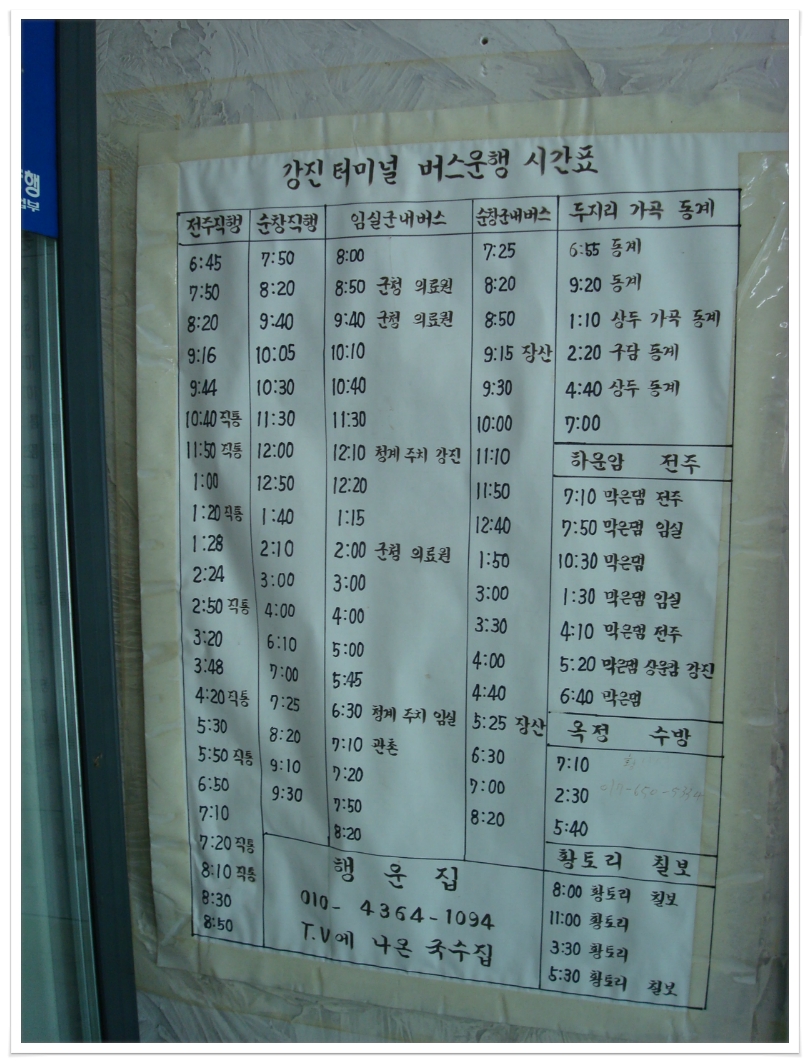 행
강진 터미널 버스운행 시간표
전주직행
6:45
7:50
8:20
9:16
9:44
10:40 직통
11:50 직통
1:00
1:20 직통
1:28
2:24
2:50 직통
3:20
3:48
4:20 직통
5:30
5:50 직통
6:50
7:10
7:20 직통
8:10 직통
8:30
8:50
순창직행
7:50
8:20
9:40
10:05
10:30
11:30
12:00
12:50
1:40
2:10
3:00
4:00
6:10
7:00
7:25
8:20
9:10
9:30
임실군내버스
8:00
8:50 군청 의료원
9:40 군청 의료원
10:10
10:40
11:30
12:10 청계 주치 강진
12:20
1:15
2:00 군청 의료원
3:00
4:00
5:00
5:45
6:30 청계 주치 임실
7:10 관촌
7:20
7:50
8:20
순창군내버스
7:25
8:20
8:50
9:15 장산
9:30
10:00
11:10
11:50
12:40
1:50
3:00
3:30
4:00
4:40
5:25 장산
6:30
7:00
8:20
두지리 가곡 동계
6:55 동계
9:20 동계
1:10 상두 가곡 동계
2:20 구담 동계
4:40 상두 동계
7:00
하운암 전주
7:10 막은댐 전주
7:50 막은댐 임실
10:30 막은댐
1:30 막은댐 임실
4:10 막은댐 전주
5:20 막은댐 상운암 강진
6:40 막은댐
옥정 수방
7:10
2:30
5:40
황토리 칠보
8:00 황토리 칠보
11:00 황토리
3:30 황토리
5:30 황토리 칠보
행운집
010- 4364-1094
T.V에 나온 국수집